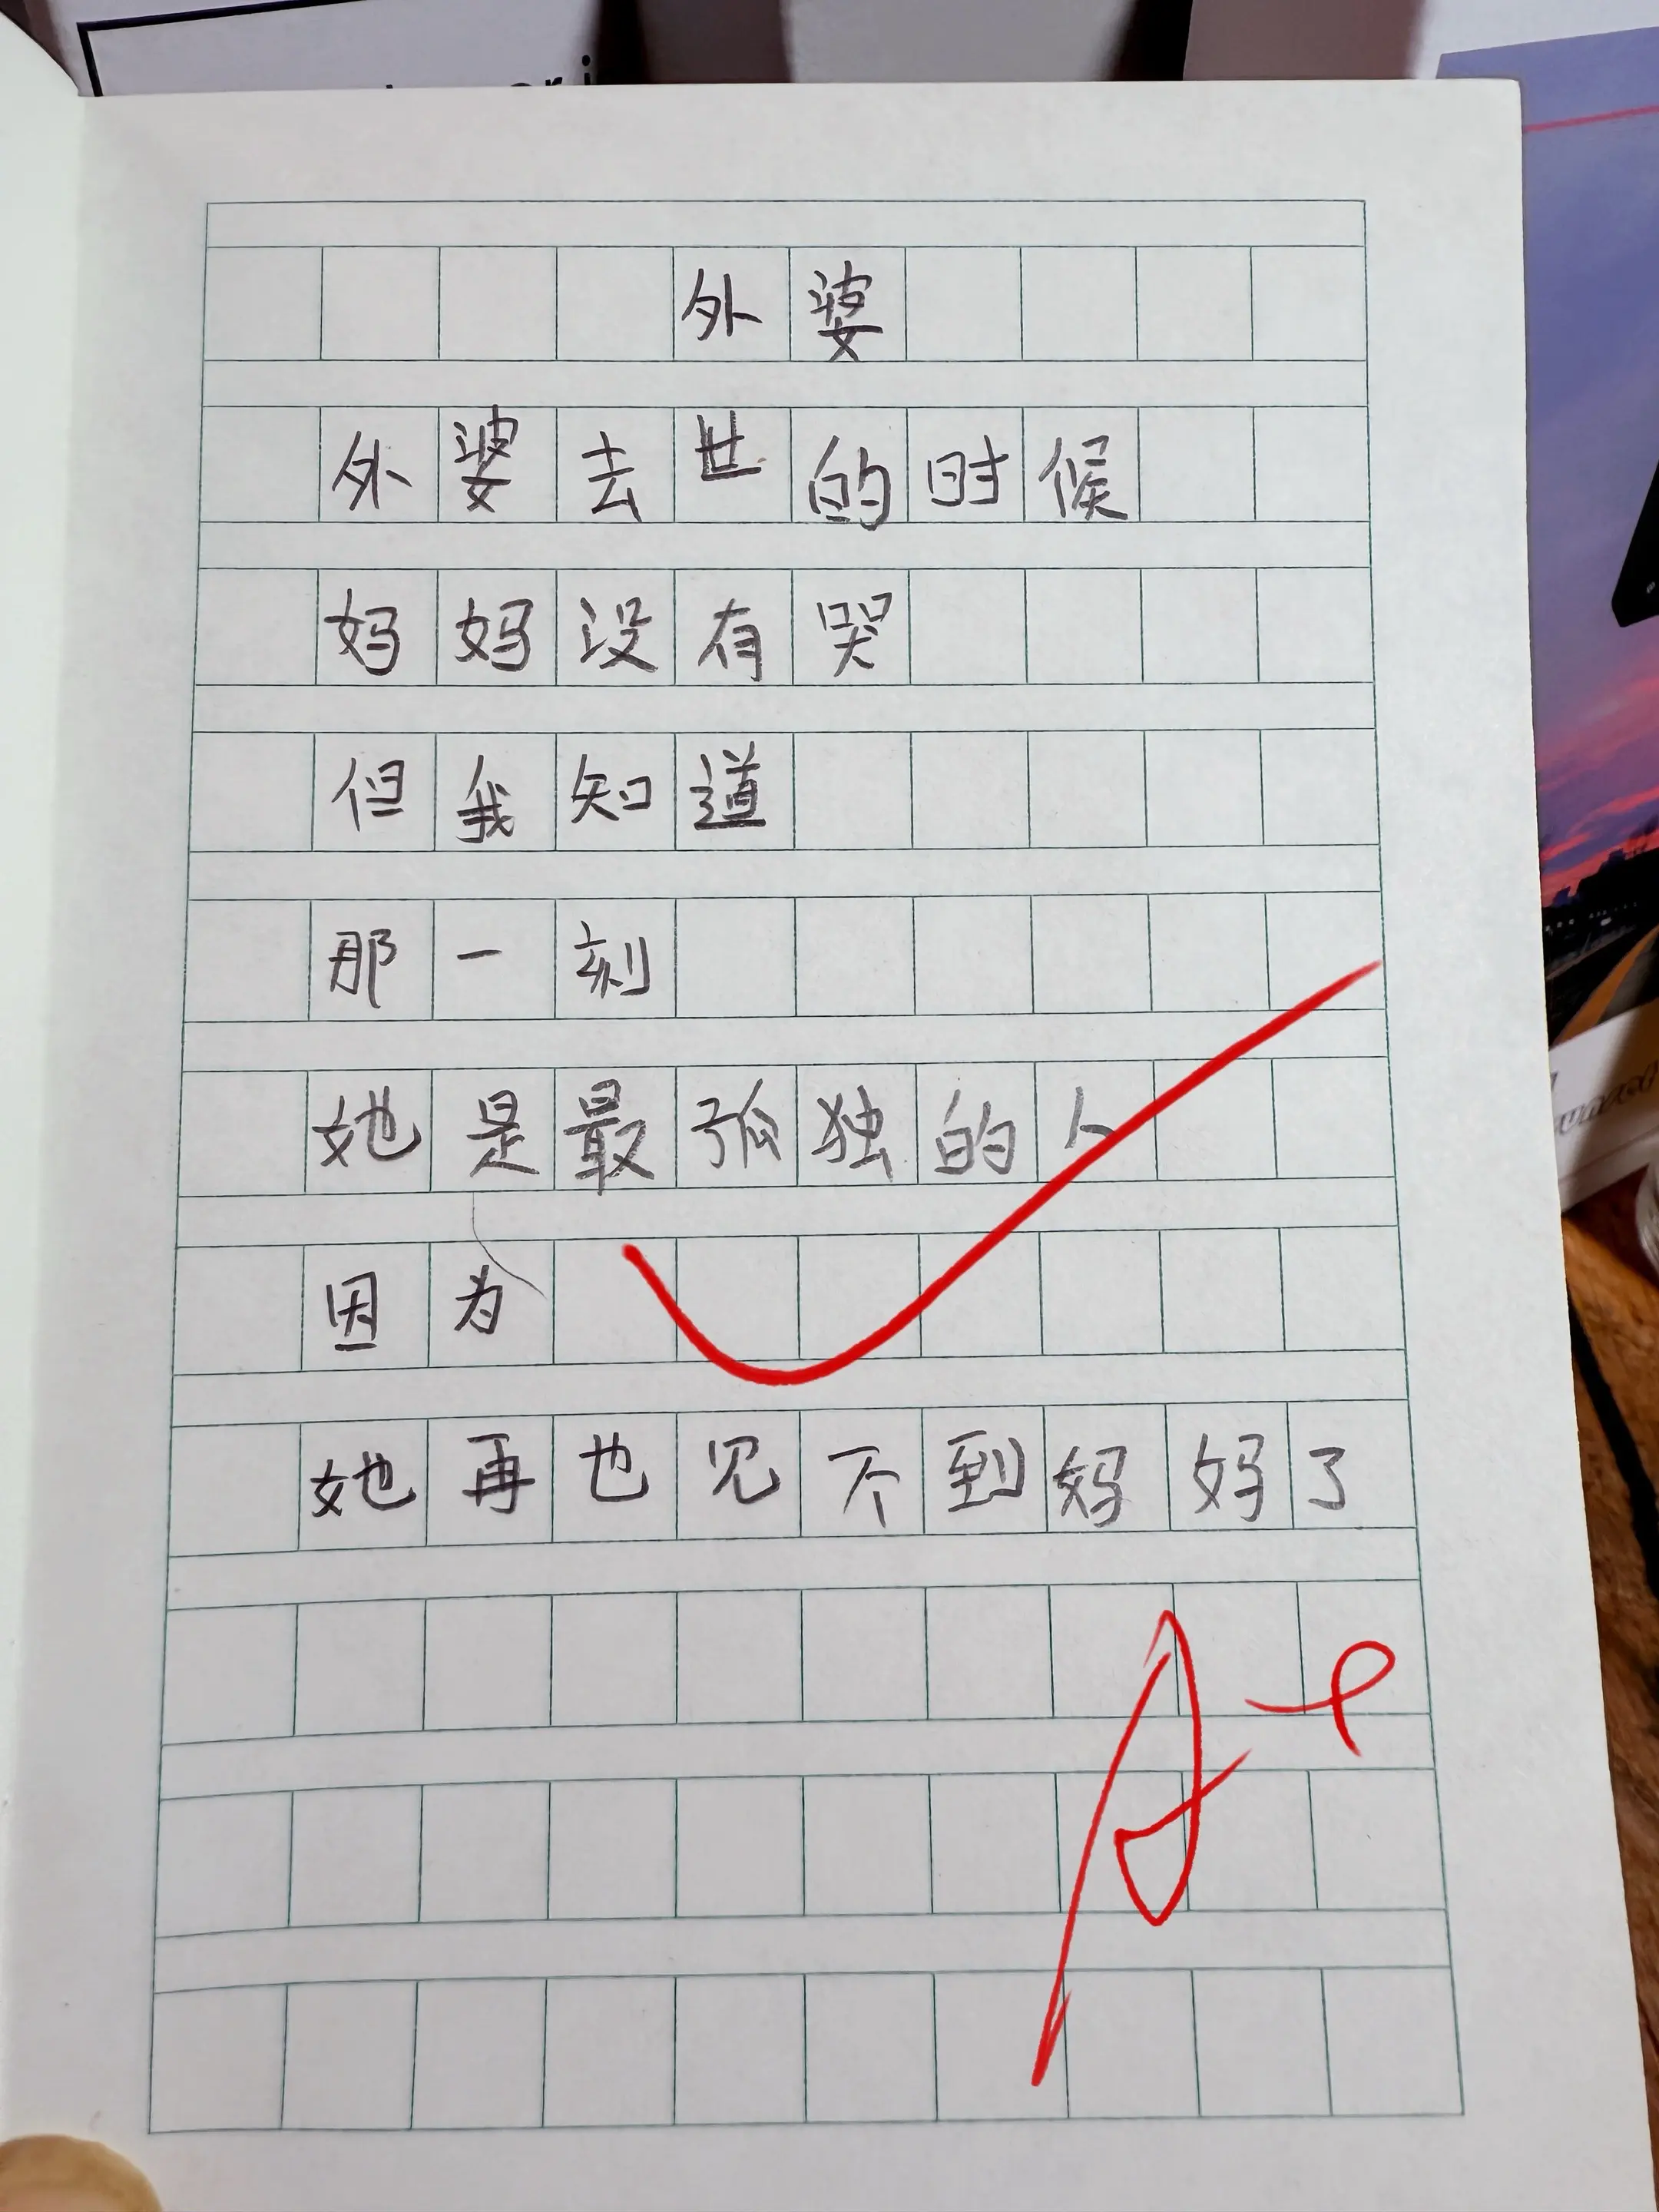 外婆
外婆去世的时候
妈妈没有哭
但我知道
那一刻
她是最孤独的人
因为
她再也见不到妈妈了
A+